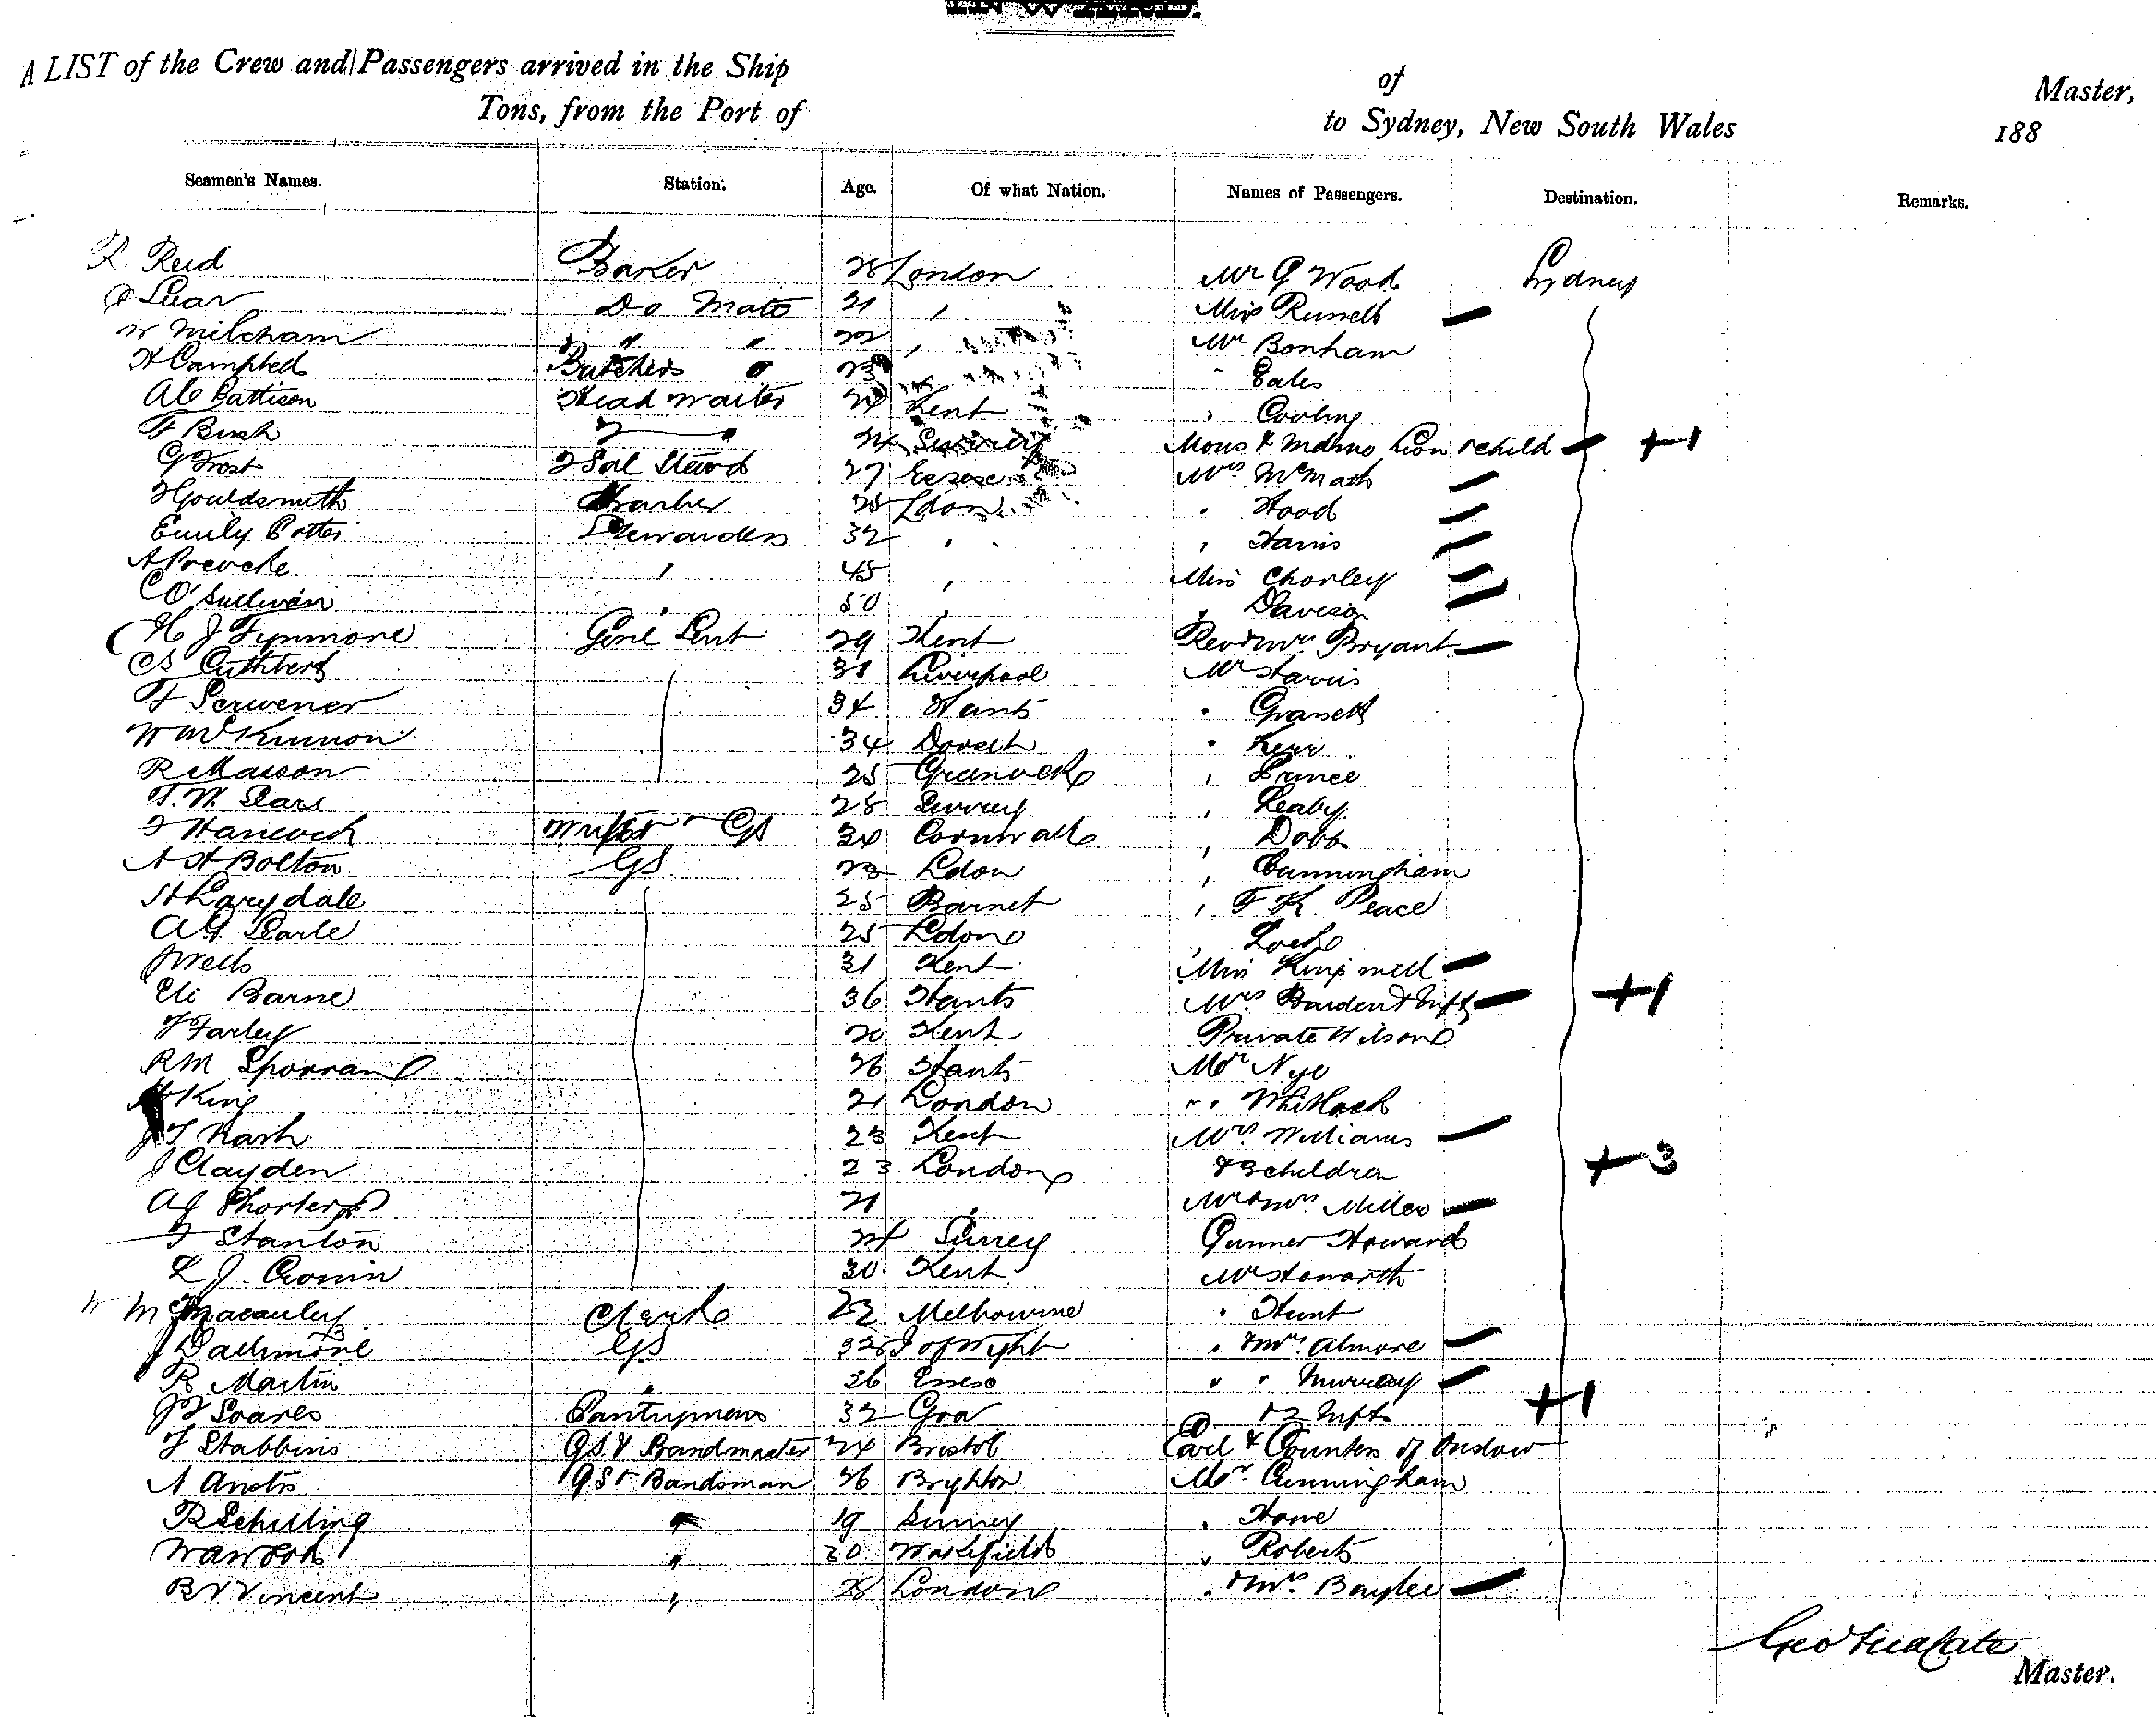 INWARD.
A LIST of the Crew and Passengers arrived in the Ship of Master,
Tons, from the Port of to Sydney, New South Wales 188
Seamen's Names. Station. Age. Of what Nation. Names of Passengers. Destination. Remarks.
R. Reid Baker 28 London Mr G Wood Sydney
Do Mate 21 " Miss Russell
W Milcham " " 22 " Mr Bonham
H Campbell Butchers " 23 " " Eales
A C Pattison Head Waiter 24 Kent " Cooling
F Birch " " 24 Surrey Mons & Mdme Lion & child +1
G Frost 2 Sal Steward 27 Essex Mrs McMath
Gouldsmith Barber 28 Ldon " Hood
Emily Potter Stewardess 32 " " Harris
A Preocke " 45 " Miss Chorley
C O'Sullivan " 50 " " Davison
H J Tynmore Genl Servt 29 Kent Rev & Mrs Bryant
C S Cuthbert 31 Liverpool Mr Harris
F Scrivener 34 Hants "
W McKinnon 34 Dorset "
R Maison 25 Greenock " Prince
F. W. Sears 28 Surrey " Leahy
Hancock GS 34 Cornwall " Dobb
A H Bolton GS 23 Ldon " Cunningham
H Larydale 25 Barnet " F K Peace
A G Searle 25 Ldon " Locke
J Wells 31 Kent Miss Kingsmill
Eli Barne 36 Hants Mrs Barden & Inft +1
F Farley 20 Kent Private Wilson
R M Sporran 26 Hants Mr Nye
H King 21 London " " Whitlock
J T Nash 23 Kent Mrs Williams
J Clayden 23 London & 3 children +3
A J Shorter 21 " Mr & Mrs Miller
F Stanton 24 Surrey Gunner Howard
L J Cronin 30 Kent Mr Howorth
Macauley Clerk 22 Melbourne " Hunt
J Dachmore GS 32 I of Wight " & Mrs Almore
R Martin " 36 Essex " " Murray
J F Soares Pantryman 32 Goa & 2 Infts +1
F Stabbins GS & Bandmaster 24 Bristol Earl & Countess of Onslow
A Anstis GS & Bandsman 26 Brighton Mr. Cunningham
R Schilling " 19 Surrey " Howe
" 30 Wakefield " Roberts
B V Vincent " 28 London " & Mrs. Baylee
Master.